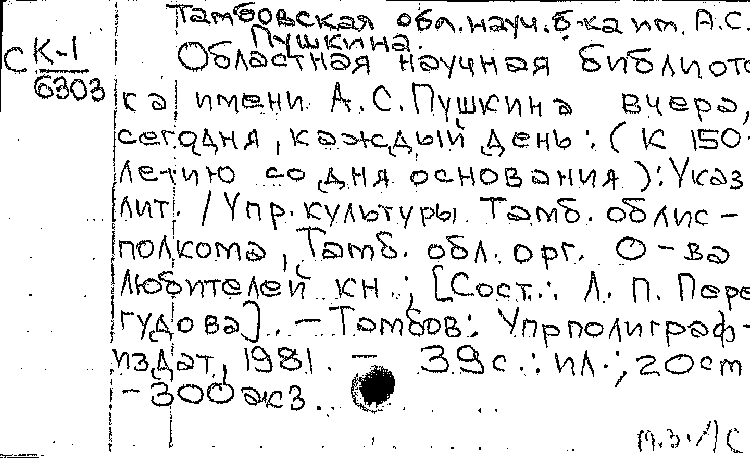 Тамбовская обл. науч. б-ка им. А.С.
Пушкина.
СК-1
6303
Областная научная библиоте
ка имени А.С. Пушкина вчера,
сегодня, каждый день : ( К 150-
летию со дня основания ) : Указ
лит. / Упр. культуры Тамб. облис-
полкома, Тамб. обл. орг. О-ва
любителей кн. ; [Сост.: Л. П. Пере
гудова]. – Тамбов: Упрполиграф-
издат, 1981. – 39с. : ил. ; 20см
– 300 экз.